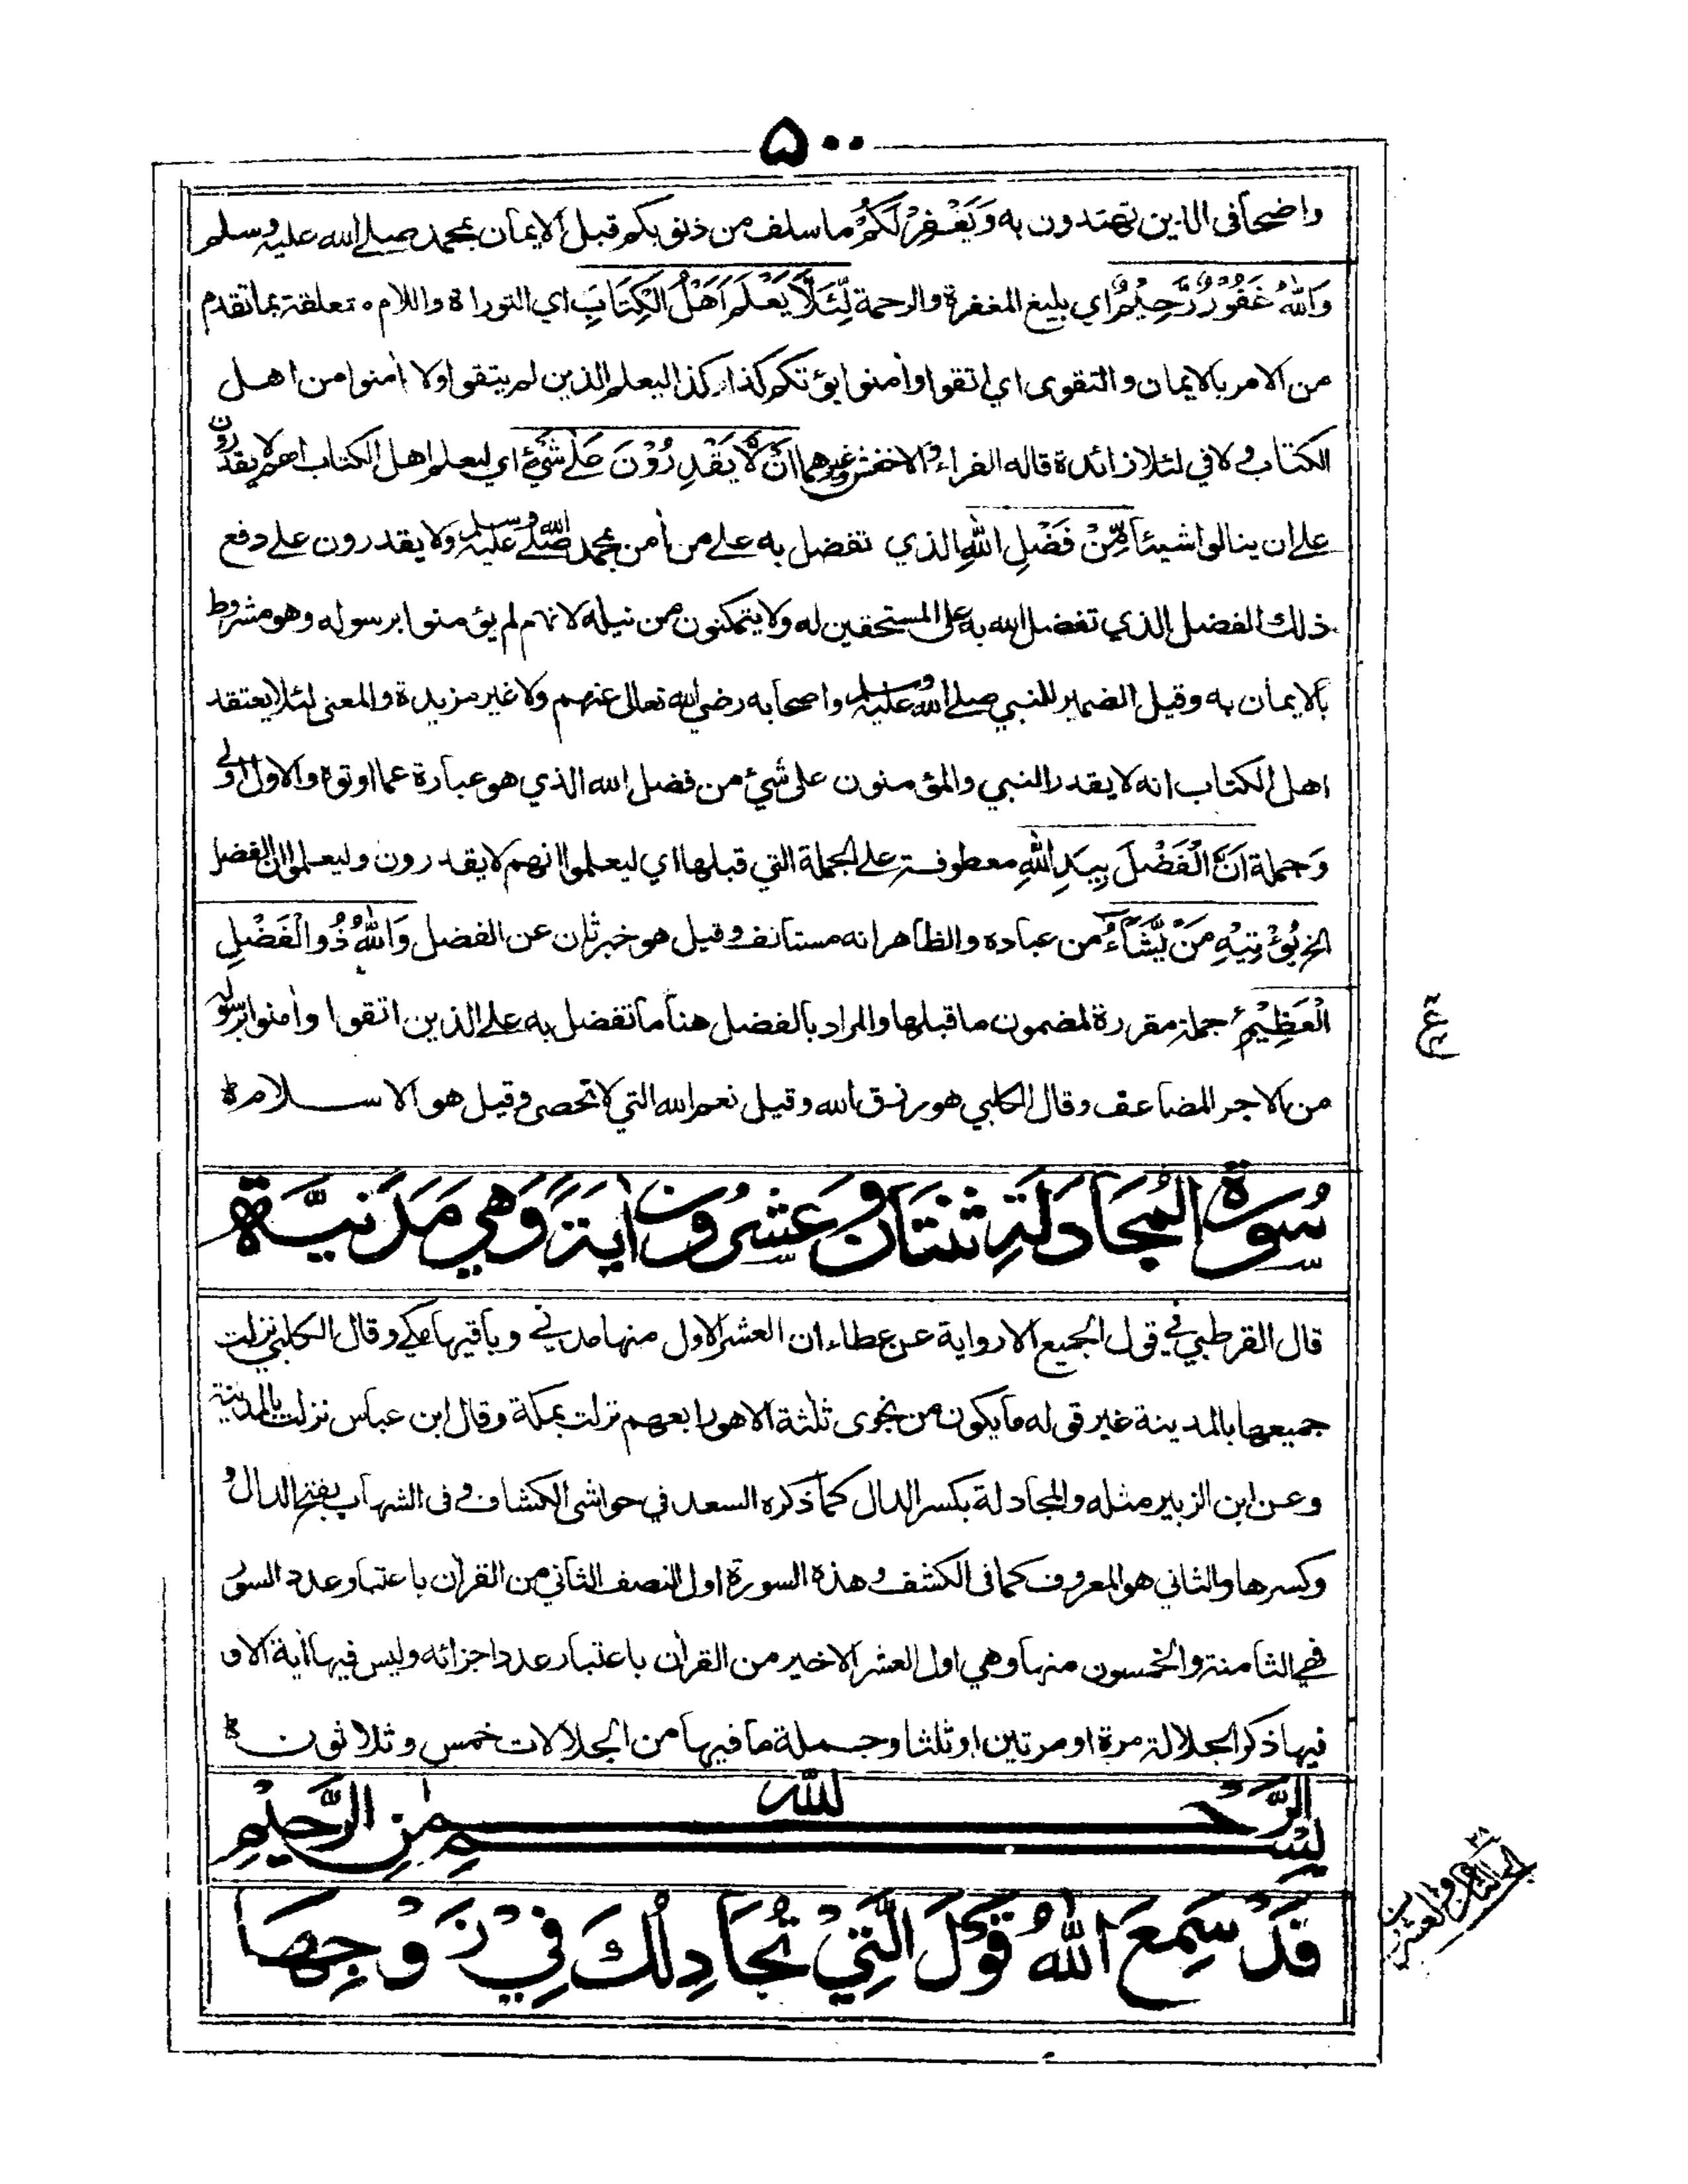 ٥٠٠
واضحا فى الدين تهتدون به وَيَغْفِرْ لَكُمْ ما سلف من ذنوبكم قبل الايمان بمحمد صلى الله عليه وسلم
وَاللهُ غَفُوْرٌ رَّحِيْمٌ اي بليغ المغفرة والرحمة لِّئَلَّا يَعْلَمَ اَهْلُ الْكِتَابِ اي التوراة واللام متعلقة بما تقدم
من الامر بالايمان والتقوى اي اتقوا وأمنوا يؤتكم كذا وكذا ليعلم الذين لم يتقوا ولا أمنوا من اهل
الكتاب ولا في لئلا زائدة قاله الفراء والاخفش وغيرهما اَنْ لَّا يَقْدِرُوْنَ عَلٰى شَيْءٍ اي ليعلم اهل الكتاب انهم لا يقدرون
على ان ينالوا شيئا مِّنْ فَضْلِ اللهِ الذي تفضل به على من أمن بمحمد صلى الله عليه وسلم ولا يقدرون على دفع
ذلك الفضل الذي تفضل الله به على المستحقين له ولا يتمكنون من نيله لانهم لم يؤمنوا برسوله وهو مشروط
بالايمان به وقيل الضمير للنبي صلى الله عليه وسلم واصحابه رضي الله تعالى عنهم ولا غير مزيدة والمعنى لئلا يعتقد
اهل الكتاب انه لا يقدر النبي والمؤمنون على شيء من فضل الله الذي هو عبارة عما اوتوه والاول اولى
وَجملة اَنَّ الْفَضْلَ بِيَدِ اللهِ معطوفة على الجملة التي قبلها اي ليعلموا انهم لا يقدرون وليعلموا ان الفضل
الخ يُؤْتِيْهِ مَنْ يَّشَآءُ من عباده والظاهر انه مستانف وقيل هو خبر ثان عن الفضل وَاللهُ ذُو الْفَضْلِ
الْعَظِيْمِ جملة مقررة لمضمون ما قبلها والمراد بالفضل هنا ما تفضل به على الذين اتقوا وأمنوا برسوله
من الاجر المضاعف وقال الكلبي هو رزق الله وقيل نعم الله التي لا تحصى وقيل هو الاسلام
ع
سُوْرَةُ الْمُجَادَلَةِ ثِنْتَانِ وَعِشْرُوْنَ اٰيَةً وَهِيَ مَدَنِيَّةٌ
قال القرطبي في قول الجميع الا رواية عن عطاء ان العشر الاول منها مدني وباقيها مكي وقال الكلبي نزلت
جميعها بالمدينة غير قوله ما يكون من نجوى ثلثة الا هو رابعهم نزلت بمكة وقال ابن عباس نزلت بالمدينة
وعن ابن الزبير مثله والمجادلة بكسر الدال كما ذكره السعد في حواشى الكشاف وفى الشهاب بفتح الدال و
وكسرها والثاني هو المعروف كما فى الكشف وهذه السورة اول النصف الثاني من القرأن باعتبار عدد السور
فهي الثامنة والخمسون منها وهي اول العشر الاخير من القرأن باعتبار عدد اجزائه وليس فيها أية الا و
فيها ذكر الجلالة مرة او مرتين او ثلثا وجملة ما فيها من الجلالات خمس وثلاثون
بِسْمِ اللهِ الرَّحْمٰنِ الرَّحِيْمِ
قَدْ سَمِعَ اللهُ قَوْلَ الَّتِيْ تُجَادِلُكَ فِيْ زَوْجِهَا